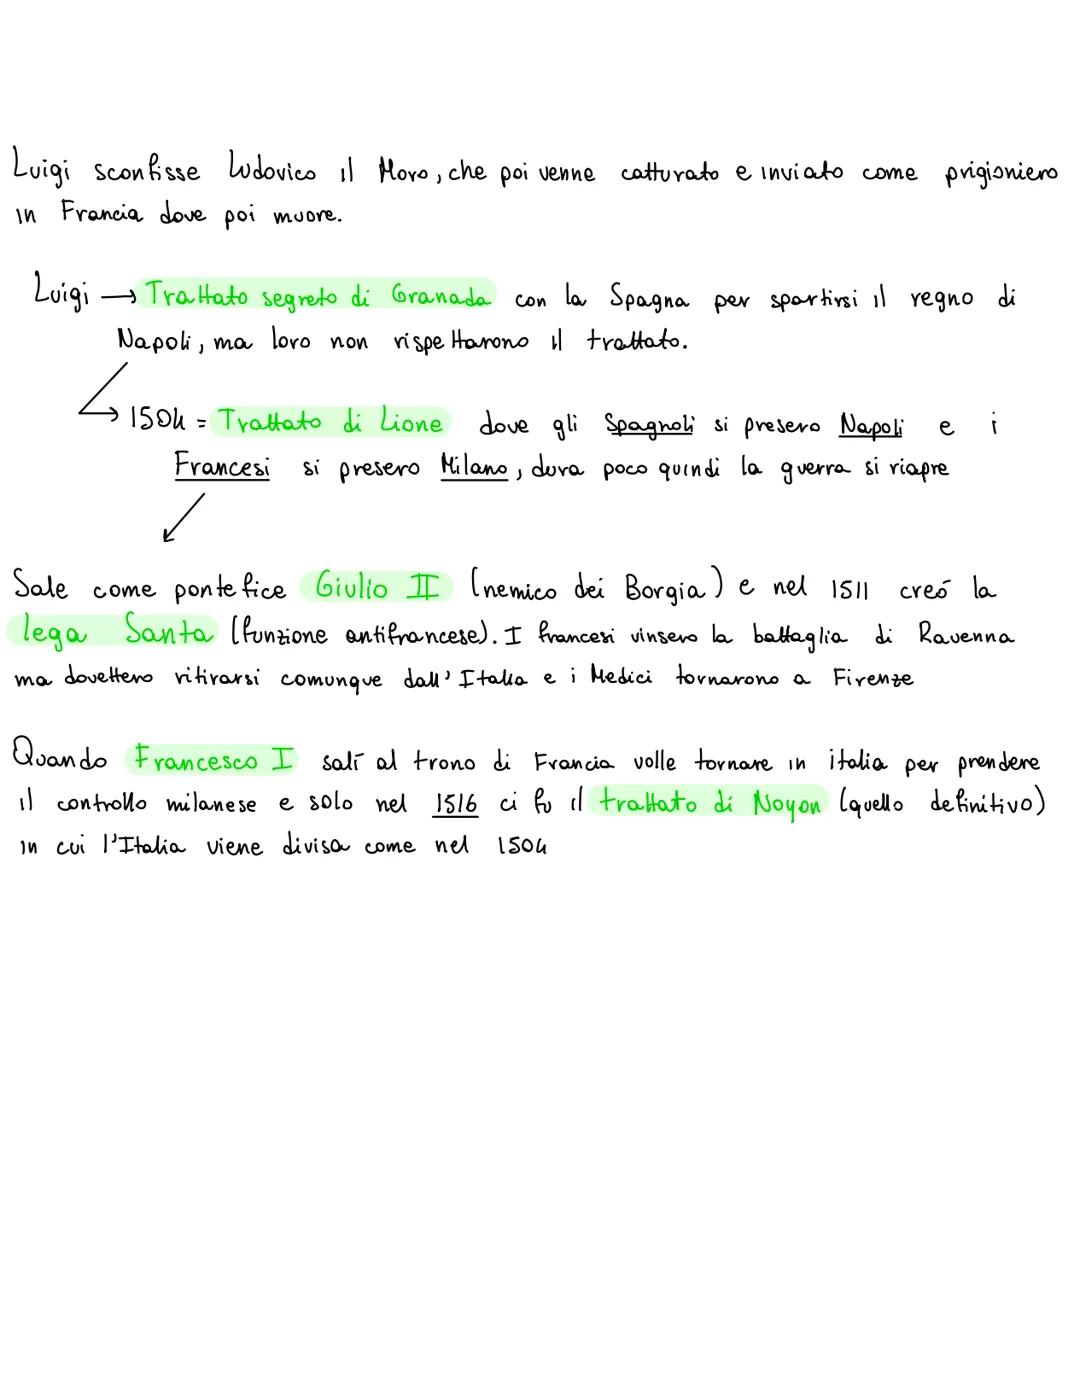 Luigi sconfisse Ludovico il Moro, che poi venne catturato e inviato come prigioniero
in Francia dove poi muore.
Luigi → Trattato segreto di Granada con la Spagna per spartirsi il regno di
Napoli, ma loro non rispettarono il trattato.
→ 1504 = Trattato di Lione dove gli Spagnoli si presero Napoli e i
Francesi si presero Milano, dura poco quindi la guerra si riapre
Sale come pontefice Giulio II (nemico dei Borgia) e nel 1511 creó la
lega Santa (funzione antifrancese). I francesi vinsero la battaglia di Ravenna
ma dovettero ritirarsi comunque dall'Italia e i Medici tornarono a Firenze
Quando Francesco I salí al trono di Francia volle tornare in italia per prendere
il controllo milanese e solo nel 1516 ci fu il trattato di Noyon (quello definitivo)
in cui l'Italia viene divisa come nel 1504